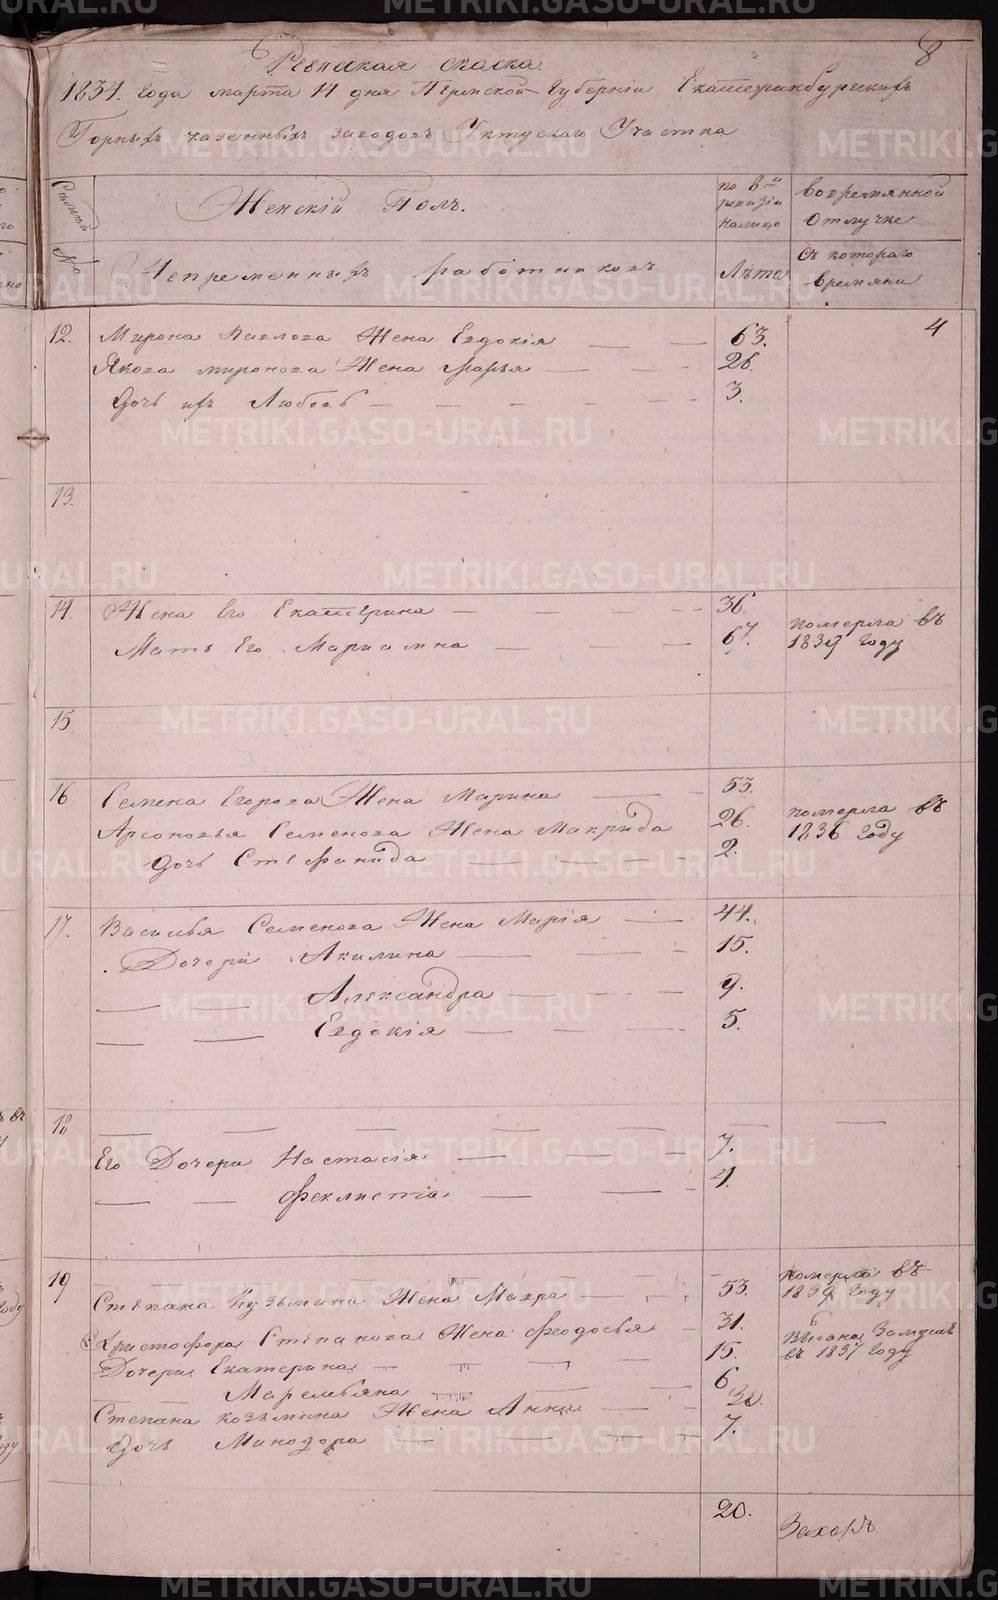 8
Ревизская сказка.
1834. года марта 14 дня Пермской Губернiи Екатеринбургскихъ
Горныхъ казенныхъ заводовъ Уктускаго Участка
Семьи
№
Женскiй Полъ.
по 8й ревизiи на лицо
во временной отлучке
Непременныхъ работниковъ.
Лѣта
Съ котораго времяни
4
12. Мирона Павлова Жена Евдокiя 63.
Якова миронова Жена марья 26.
Дочь ихъ Любовь 3.
13.
14. Жена Его Екатерина 36.
Мать Его Марiамна 67. померла въ
1839 Году
15
16 Семена Егорова Жена Марина 53.
Семенова Жена Макрида 26. померла въ
1836 Году
Дочь Стефанида 2.
17. Василья Семенова Жена Марiя 44.
Дочери Акилина 15.
Александра 9.
Евдокiя 5.
18
Его Дочери Настасiя 7.
Феклиста 4.
19 померла въ
Степана Кузьмина Жена Мавра 53. 1839 Году
Христофора Степанова Жена Феодосья 31.
Дочери Екатерина 15. выдана Замужъ
въ 1837 Году
Маремьяна 6
Степана козьмина Жена Анна 32.
Дочь Минодора 7.
20.
METRIKI.GASO-URAL.RU